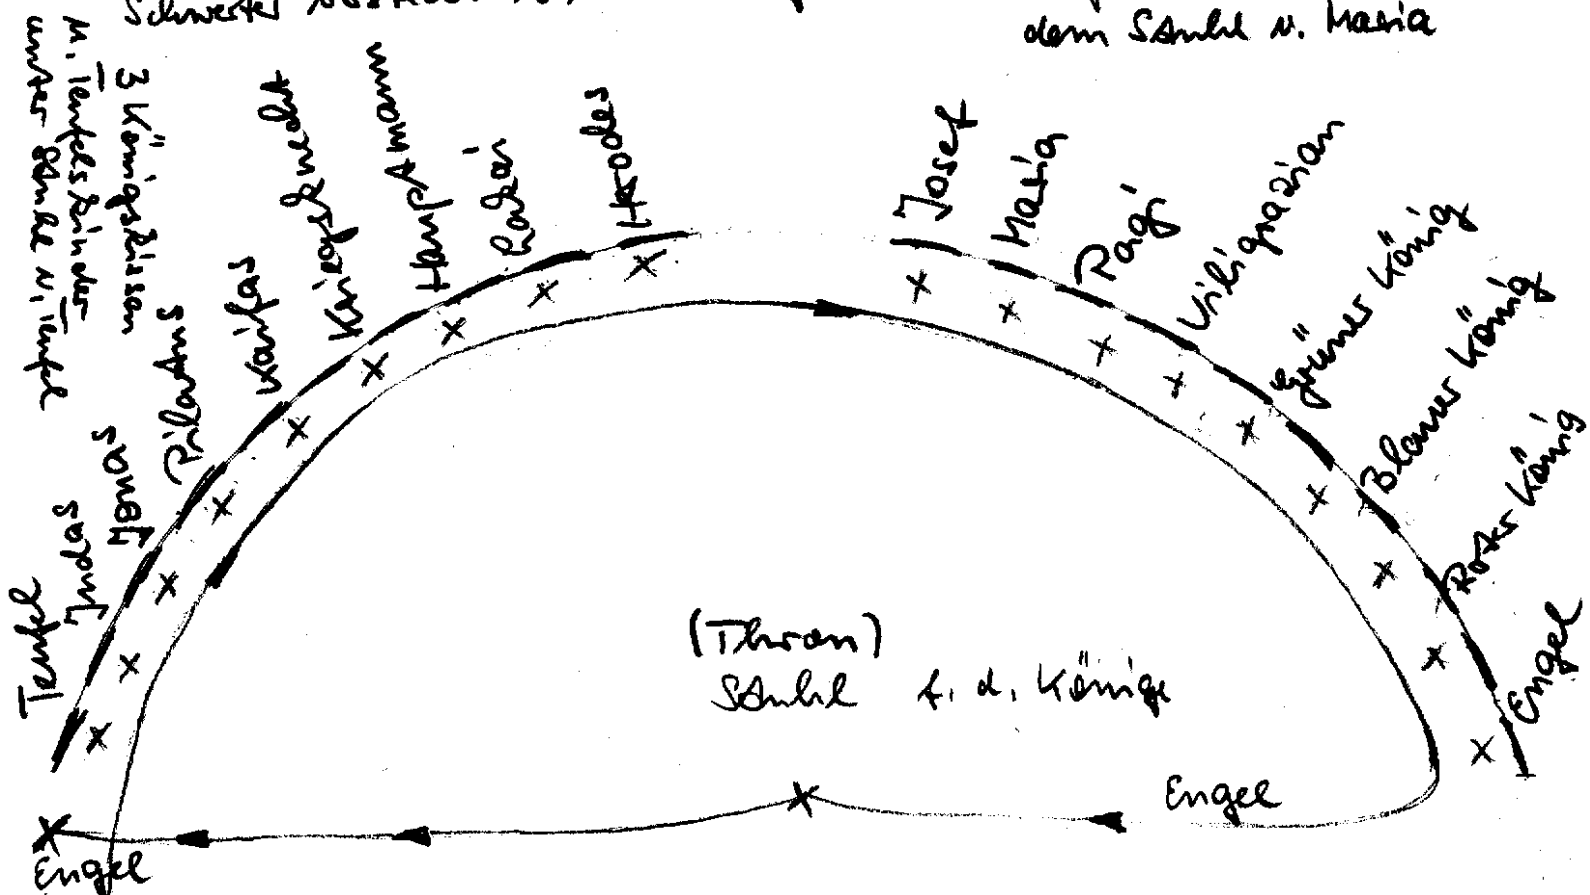 Schwerter
dem Stuhl v. Maria
3 Königskissen
u. Teufelskinder
unter Stuhl v. Teufel
Teufel
Judas
Annas
Pilatus
Kaifas
Kriegsknecht
Hauptmann
Lakai
Herodes
Josef
Maria
Pagi
Viligrazian
Grüner König
Blauer König
Roter König
Engel
(Thron)
Stuhl f. d. Könige
Engel
Engel